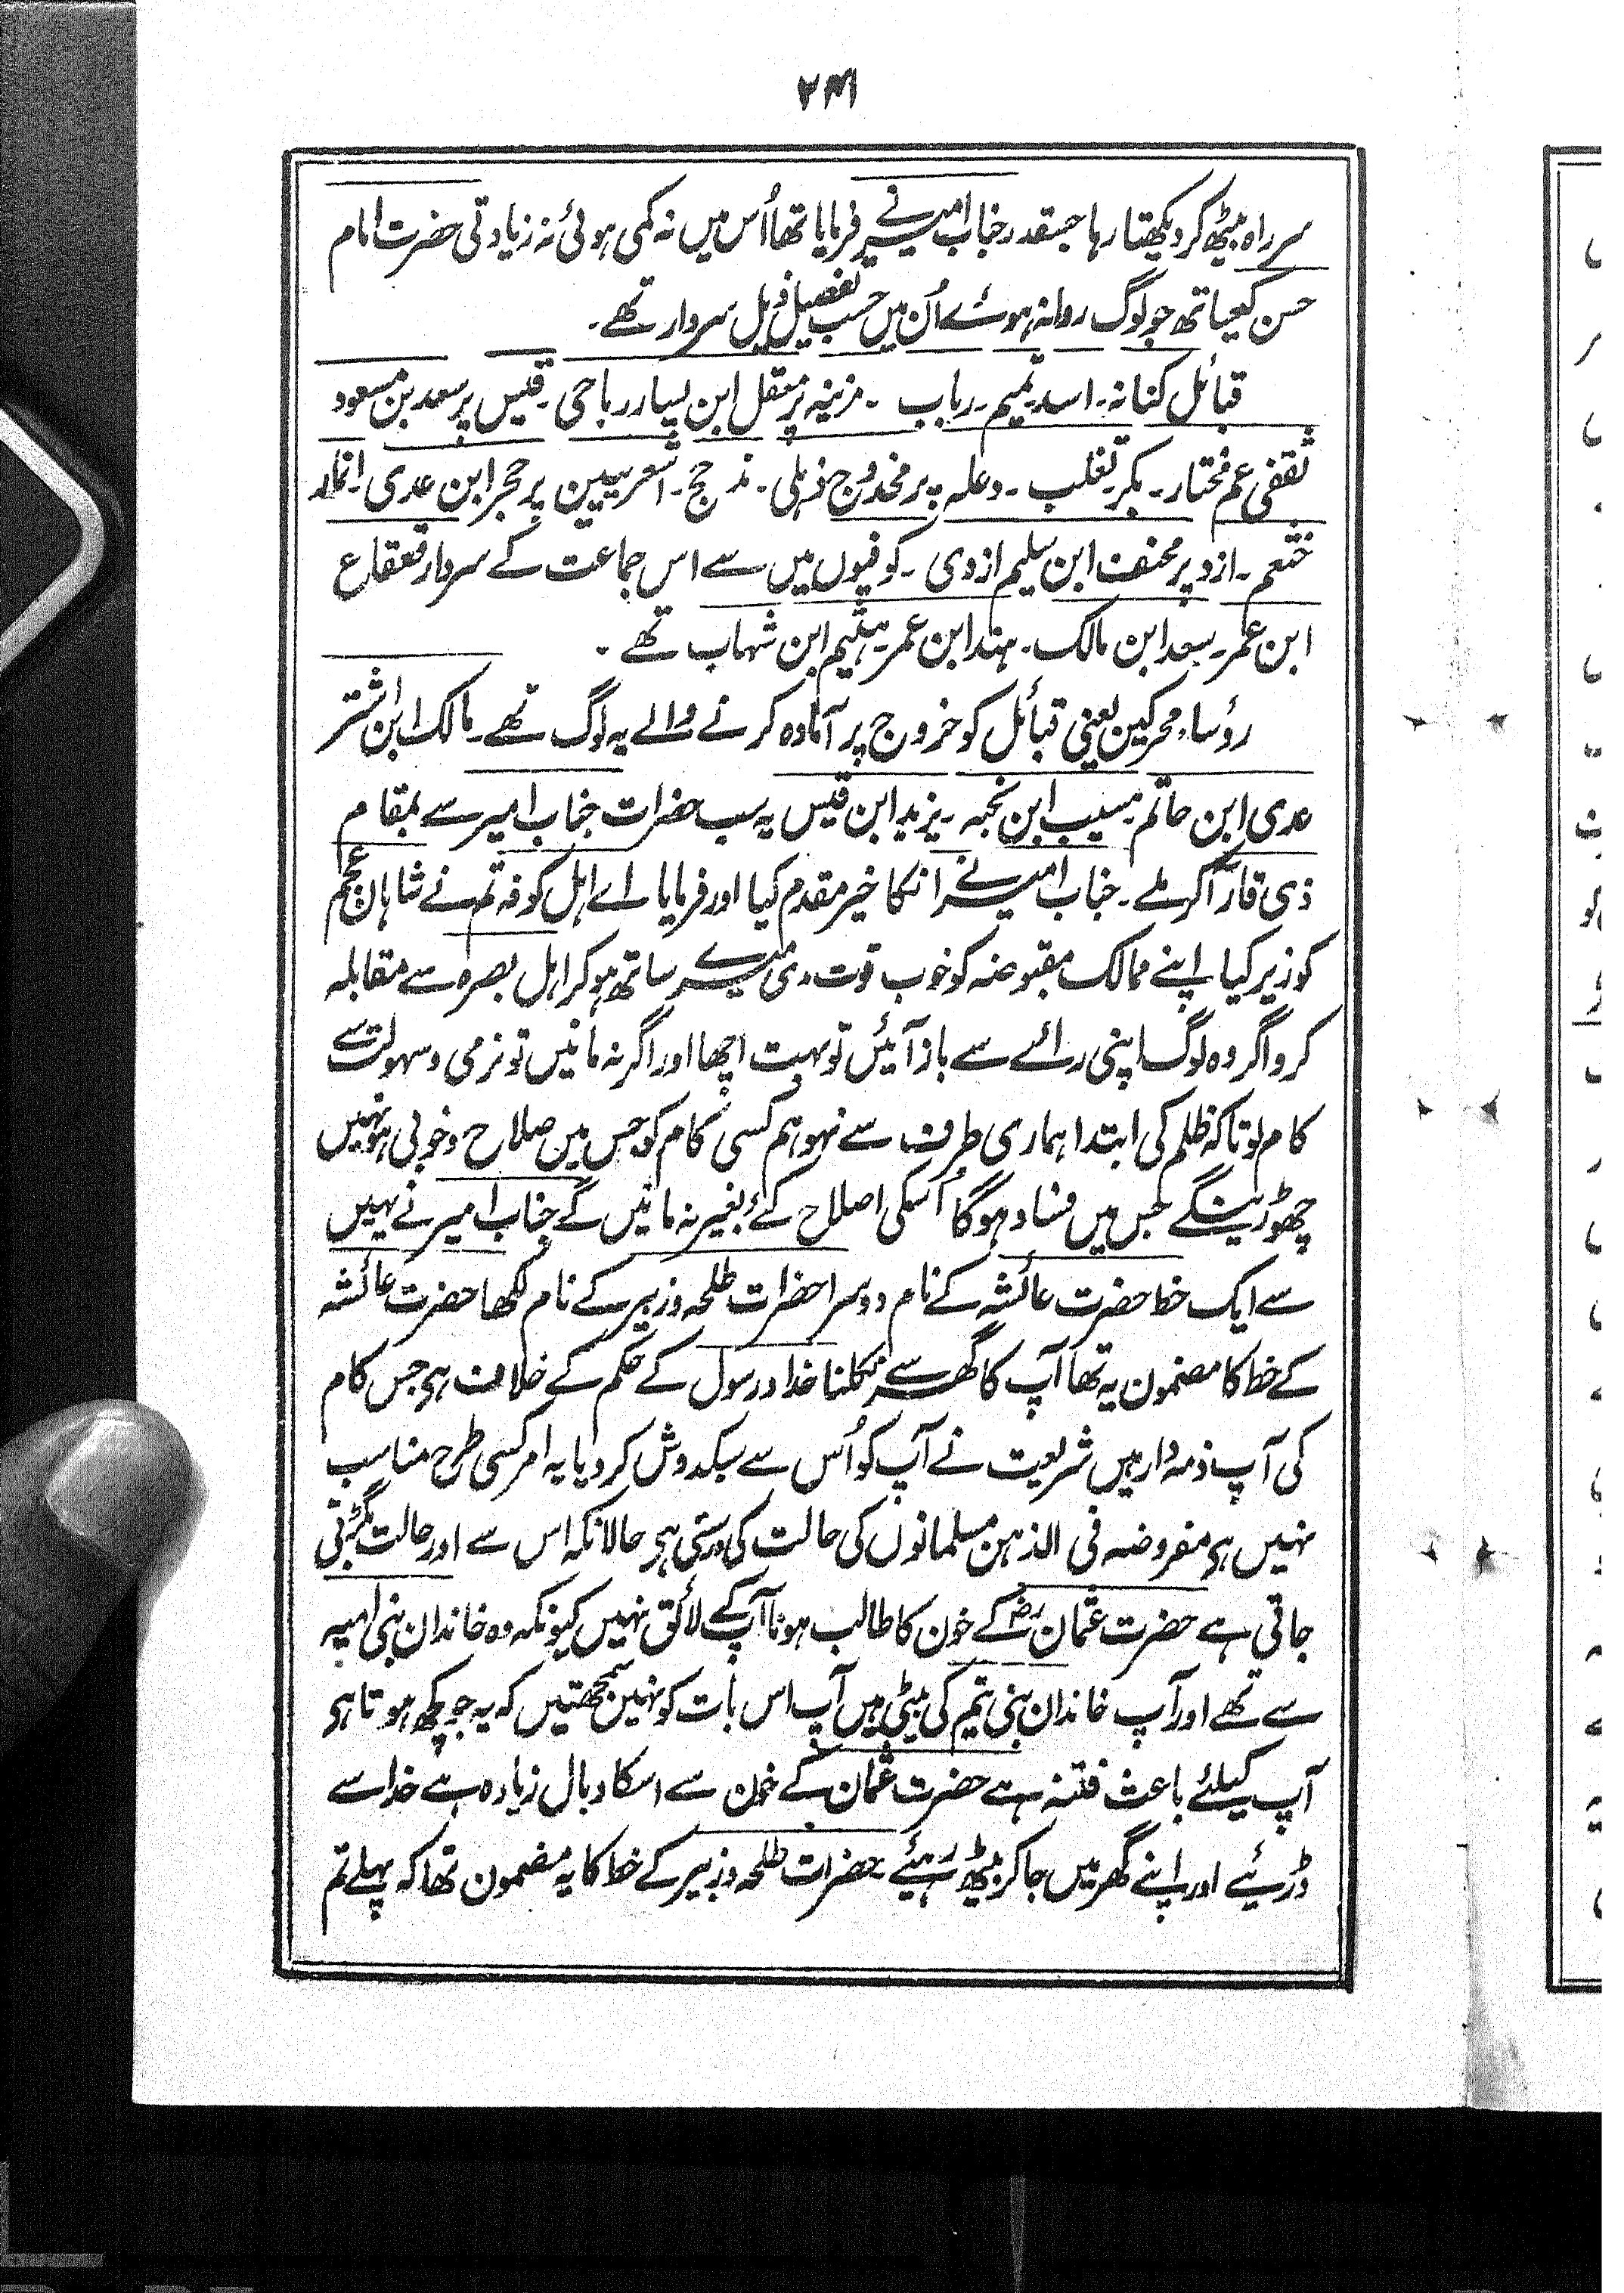 ۲۴۱
سرراہ بیٹھ کر دیکھتا رہا جسقدر جناب امیر نے فرمایا تھا اُس میں نہ کمی ہوئی نہ زیادتی حضرت امام
حسن کیساتھ جو لوگ روانہ ہوئے اُن میں حسب تفصیل ذیل سردار تھے۔
قبائل کنانہ۔ اسد۔ تمیم۔ رباب ۔ مزینہ پر معقل ابن یسار ریاحی۔ قیس پر سعد بن مسعود
ثقفی عم مختار۔ بکر۔ تغلب ۔ وعلہ پر مخدوج ذہلی۔ مذحج۔ اشعریین پر حجر ابن عدی۔ انمار
خثعم۔ ازد پر مخنف ابن سلیم ازدی ۔ کوفیوں میں سے اس جماعت کے سردار قعقاع
ابن عمر۔ سعد ابن مالک۔ ہند ابن عمر۔ ہثیم ابن شہاب تھے ۔
رؤساء محرکین یعنی قبائل کو خروج پر آمادہ کرنے والے یہ لوگ تھے۔ مالک ابن اشتر
عدی ابن حاتم۔ مسیب ابن نجبہ ۔ یزید ابن قیس یہ سب حضرات جناب امیر سے بمقام
ذی قار آکر ملے۔ جناب امیر نے انکا خیر مقدم کیا اور فرمایا اے اہل کوفہ تم نے شاہان عجم
کو زیر کیا اپنے ممالک مقبوضہ کو خوب قوت دی میرے ساتھ ہو کر اہل بصرہ سے مقابلہ
کرو اگر وہ لوگ اپنی رائے سے باز آئیں تو بہت اچھا اور اگر نہ مانیں تو نرمی و سہولت سے
کام لو تاکہ ظلم کی ابتدا ہماری طرف سے نہو ہم کسی کام کو جس میں صلاح و خوبی ہو نہیں
چھوڑینگے جس میں فساد ہوگا اُسکی اصلاح کئے بغیر نہ مانیں گے جناب امیر نے یہیں
سے ایک خط حضرت عائشہ کے نام دوسرا حضرات طلحہ و زبیر کے نام لکھا حضرت عائشہ
کے خط کا مضمون یہ تھا آپ کا گھر سے نکلنا خدا و رسول کے حکم کے خلاف ہی جس کام
کی آپ ذمہ دار ہیں شریعت نے آپ کو اُس سے سبکدوش کر دیا یہ امر کسی طرح مناسب
نہیں ہی مفروضہ فی الذہن مسلمانوں کی حالت کی درستی ہی حالانکہ اس سے اور حالت بگڑتی
جاتی ہے حضرت عثمان رض کے خون کا طالب ہونا آپ کے لائق نہیں کیونکہ وہ خاندان بنی امیہ
سے تھے اور آپ خاندان بنی تیم کی بیٹی ہیں آپ اس بات کو نہیں سمجھتیں کہ یہ جو کچھ ہوتا ہی
آپ کیلئے باعث فتنہ ہے حضرت عثمان کے خون سے اسکا وبال زیادہ ہے خدا سے
ڈرئیے اور اپنے گھر میں جا کر بیٹھ رہئیے۔ حضرات طلحہ و زبیر کے خط کا یہ مضمون تھا کہ پہلے تم